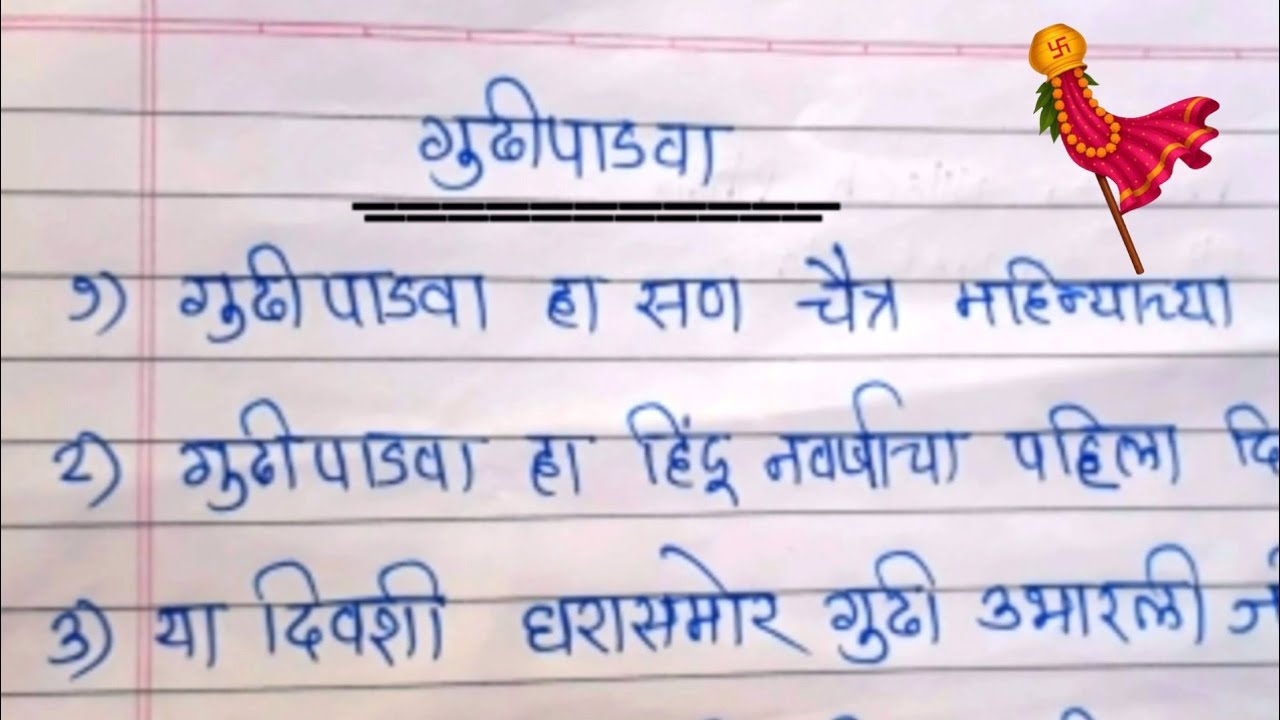 गुढीपाडवा
१) गुढीपाडवा हा सण चैत्र महिन्याच्या
२) गुढीपाडवा हा हिंदू नववर्षाचा पहिला
३) या दिवशी घरासमोर गुढी उभारली